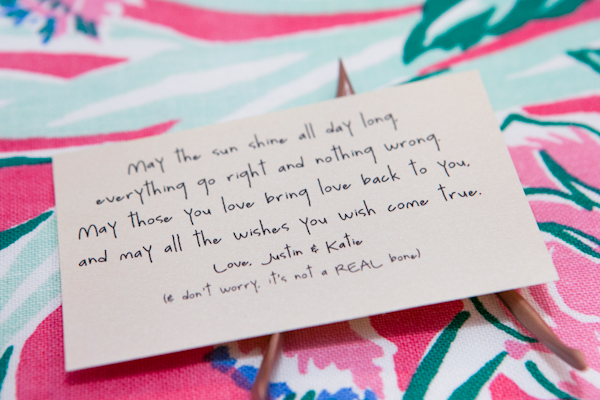 May the sun shine all day long,
everything go right and nothing wrong.
May those you love bring love back to you,
and may all the wishes you wish come true.
Love, Justin & Katie
(& don't worry, it's not a REAL bone)